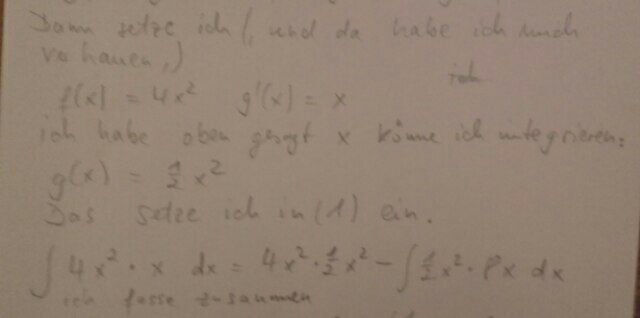 Dann setze ich (, und da habe ich mich
verhauen,)
ich
f(x) = 4x² g'(x) = x
ich habe oben gesagt x könne ich integrieren:
g(x) = 1/2 x²
Das setze ich in (1) ein.
∫ 4x² · x dx = 4x² · 1/2 x² - ∫ 1/2 x² · 8x dx
ich fasse zusammen